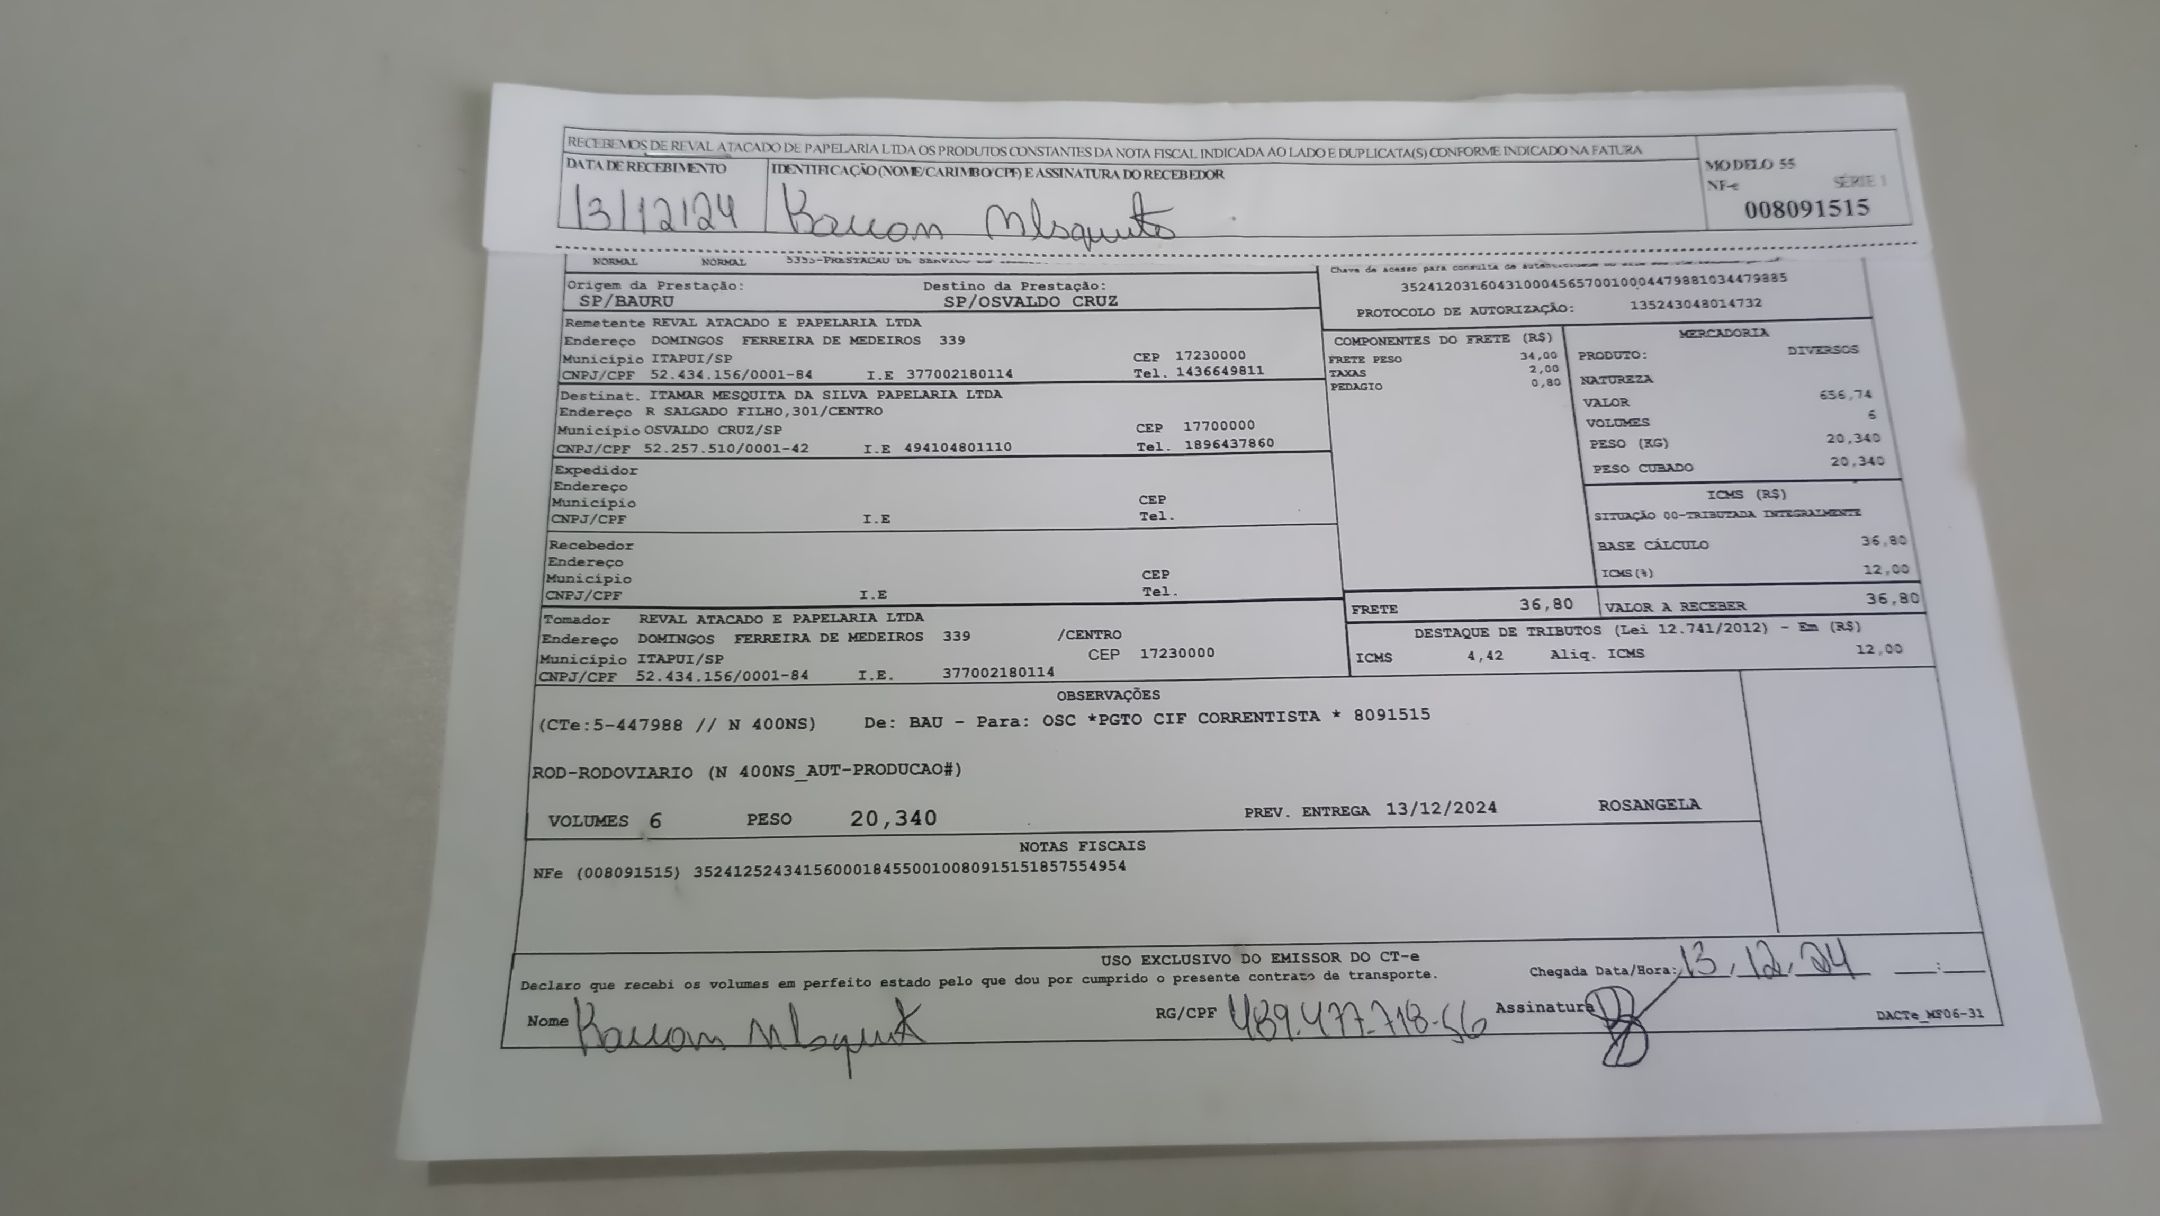 RECEBEMOS DE REVAL ATACADO DE PAPELARIA LTDA OS PRODUTOS CONSTANTES DA NOTA FISCAL INDICADA AO LADO E DUPLICATA(S) CONFORME INDICADO NA FATURA
DATA DE RECEBIMENTO IDENTIFICAÇÃO (NOME/CARIMBO/CPF) E ASSINATURA DO RECEBEDOR
MODELO 55
NF-e SÉRIE 1
008091515
13/12/24
NORMAL NORMAL
Chave de acesso para consulta de
35241203160431000456570010004479881034479885
PROTOCOLO DE AUTORIZAÇÃO: 135243048014732
Origem da Prestação: Destino da Prestação:
SP/BAURU SP/OSVALDO CRUZ
Remetente REVAL ATACADO E PAPELARIA LTDA
Endereço DOMINGOS FERREIRA DE MEDEIROS 339
Município ITAPUI/SP CEP 17230000
CNPJ/CPF 52.434.156/0001-84 I.E 377002180114 Tel. 1436649811
Destinat. ITAMAR MESQUITA DA SILVA PAPELARIA LTDA
Endereço R SALGADO FILHO,301/CENTRO
Município OSVALDO CRUZ/SP CEP 17700000
CNPJ/CPF 52.257.510/0001-42 I.E 494104801110 Tel. 1896437860
Expedidor
Endereço
Município CEP
CNPJ/CPF I.E Tel.
Recebedor
Endereço
Município CEP
CNPJ/CPF I.E Tel.
Tomador REVAL ATACADO E PAPELARIA LTDA
Endereço DOMINGOS FERREIRA DE MEDEIROS 339 /CENTRO
Município ITAPUI/SP CEP 17230000
CNPJ/CPF 52.434.156/0001-84 I.E. 377002180114
COMPONENTES DO FRETE (R$)
FRETE PESO 34,00
TAXAS 2,00
PEDAGIO 0,80
MERCADORIA
PRODUTO: DIVERSOS
NATUREZA
VALOR 656,74
VOLUMES 6
PESO (KG) 20,340
PESO CUBADO 20,340
ICMS (R$)
SITUAÇÃO 00-TRIBUTADA INTEGRALMENTE
BASE CÁLCULO 36,80
ICMS(%) 12,00
FRETE 36,80 VALOR A RECEBER 36,80
DESTAQUE DE TRIBUTOS (Lei 12.741/2012) - Em (R$)
ICMS 4,42 Aliq. ICMS 12,00
OBSERVAÇÕES
(CTe:5-447988 // N 400NS) De: BAU - Para: OSC *PGTO CIF CORRENTISTA * 8091515
ROD-RODOVIARIO (N 400NS_AUT-PRODUCAO#)
VOLUMES 6 PESO 20,340 PREV. ENTREGA 13/12/2024 ROSANGELA
NOTAS FISCAIS
NFe (008091515) 35241252434156000184550010080915151857554954
USO EXCLUSIVO DO EMISSOR DO CT-e
Declaro que recebi os volumes em perfeito estado pelo que dou por cumprido o presente contrato de transporte. Chegada Data/Hora: 13/12/24 __:__
Nome RG/CPF 489.477.718-56 Assinatura
DACTe_MF06-31